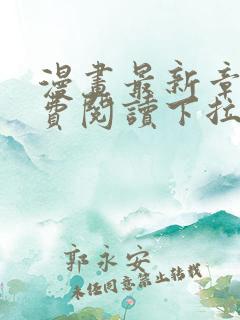 漫畫最新章
費閱讀下拉
郭永安
未經同意禁止轉載